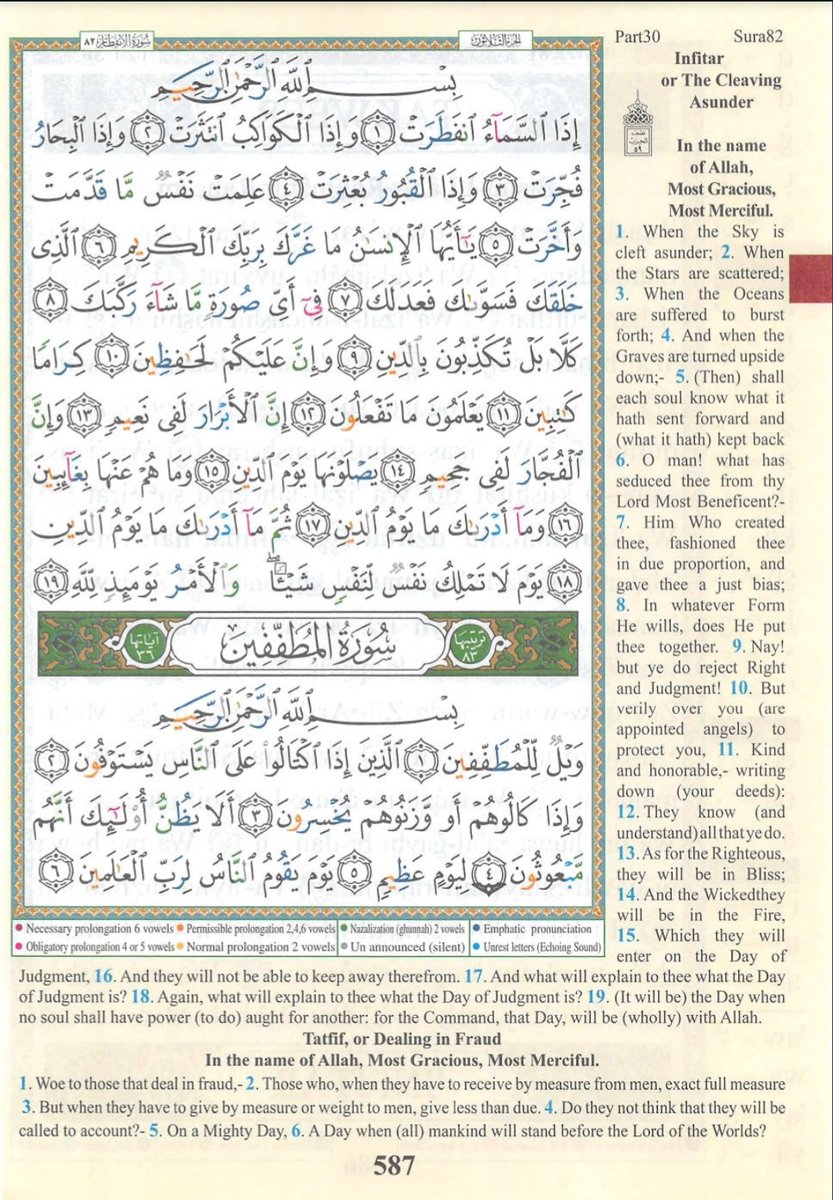 سورة الانفطار ٨٢
الجزء الثلاثون
Part30 Sura82
بِسْمِ ٱللَّهِ ٱلرَّحْمَٰنِ ٱلرَّحِيمِ
إِذَا ٱلسَّمَآءُ ٱنفَطَرَتْ ١ وَإِذَا ٱلْكَوَاكِبُ ٱنتَثَرَتْ ٢ وَإِذَا ٱلْبِحَارُ
فُجِّرَتْ ٣ وَإِذَا ٱلْقُبُورُ بُعْثِرَتْ ٤ عَلِمَتْ نَفْسٌ مَّا قَدَّمَتْ
وَأَخَّرَتْ ٥ يَٰٓأَيُّهَا ٱلْإِنسَٰنُ مَا غَرَّكَ بِرَبِّكَ ٱلْكَرِيمِ ٦ ٱلَّذِى
خَلَقَكَ فَسَوَّىٰكَ فَعَدَلَكَ ٧ فِىٓ أَىِّ صُورَةٍ مَّا شَآءَ رَكَّبَكَ ٨
كَلَّا بَلْ تُكَذِّبُونَ بِٱلدِّينِ ٩ وَإِنَّ عَلَيْكُمْ لَحَٰفِظِينَ ١٠ كِرَامًا
كَٰتِبِينَ ١١ يَعْلَمُونَ مَا تَفْعَلُونَ ١٢ إِنَّ ٱلْأَبْرَارَ لَفِى نَعِيمٍ ١٣ وَإِنَّ
ٱلْفُجَّارَ لَفِى جَحِيمٍ ١٤ يَصْلَوْنَهَا يَوْمَ ٱلدِّينِ ١٥ وَمَا هُمْ عَنْهَا بِغَآئِبِينَ
١٦ وَمَآ أَدْرَىٰكَ مَا يَوْمُ ٱلدِّينِ ١٧ ثُمَّ مَآ أَدْرَىٰكَ مَا يَوْمُ ٱلدِّينِ
١٨ يَوْمَ لَا تَمْلِكُ نَفْسٌ لِّنَفْسٍ شَيْـًٔا ۖ وَٱلْأَمْرُ يَوْمَئِذٍ لِّلَّهِ ١٩
ترتيبها ٨٣ سُورَةُ المُطَفِّفِينَ آياتها ٣٦
بِسْمِ ٱللَّهِ ٱلرَّحْمَٰنِ ٱلرَّحِيمِ
وَيْلٌ لِّلْمُطَفِّفِينَ ١ ٱلَّذِينَ إِذَا ٱكْتَالُوا۟ عَلَى ٱلنَّاسِ يَسْتَوْفُونَ ٢
وَإِذَا كَالُوهُمْ أَو وَّزَنُوهُمْ يُخْسِرُونَ ٣ أَلَا يَظُنُّ أُو۟لَٰٓئِكَ أَنَّهُم
مَّبْعُوثُونَ ٤ لِيَوْمٍ عَظِيمٍ ٥ يَوْمَ يَقُومُ ٱلنَّاسُ لِرَبِّ ٱلْعَٰلَمِينَ ٦
Necessary prolongation 6 vowels Permissible prolongation 2,4,6 vowels Nazalization (ghunnah) 2 vowels Emphatic pronunciation
Obligatory prolongation 4 or 5 vowels Normal prolongation 2 vowels Un announced (silent) Unrest letters (Echoing Sound)
Infitar
or The Cleaving
Asunder
نصف
الحزب
٥٩
In the name
of Allah,
Most Gracious,
Most Merciful.
1. When the Sky is
cleft asunder; 2. When
the Stars are scattered;
3. When the Oceans
are suffered to burst
forth; 4. And when the
Graves are turned upside
down;- 5. (Then) shall
each soul know what it
hath sent forward and
(what it hath) kept back
6. O man! what has
seduced thee from thy
Lord Most Beneficent?-
7. Him Who created
thee, fashioned thee
in due proportion, and
gave thee a just bias;
8. In whatever Form
He wills, does He put
thee together. 9. Nay!
but ye do reject Right
and Judgment! 10. But
verily over you (are
appointed angels) to
protect you, 11. Kind
and honorable,- writing
down (your deeds):
12. They know (and
understand) all that ye do.
13. As for the Righteous,
they will be in Bliss;
14. And the Wickedthey
will be in the Fire,
15. Which they will
enter on the Day of
Judgment, 16. And they will not be able to keep away therefrom. 17. And what will explain to thee what the Day
of Judgment is? 18. Again, what will explain to thee what the Day of Judgment is? 19. (It will be) the Day when
no soul shall have power (to do) aught for another: for the Command, that Day, will be (wholly) with Allah.
Tatfif, or Dealing in Fraud
In the name of Allah, Most Gracious, Most Merciful.
1. Woe to those that deal in fraud,- 2. Those who, when they have to receive by measure from men, exact full measure
3. But when they have to give by measure or weight to men, give less than due. 4. Do they not think that they will be
called to account?- 5. On a Mighty Day, 6. A Day when (all) mankind will stand before the Lord of the Worlds?
587